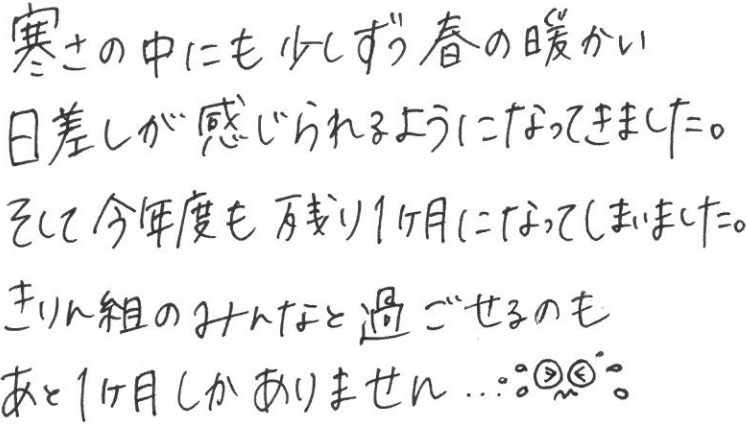 寒さの中にも少しずつ春の暖かい
日差しが感じられるようになってきました。
そして今年度も残り1ヶ月になってしまいました。
きりん組のみんなと過ごせるのも
あと1ヶ月しかありません...